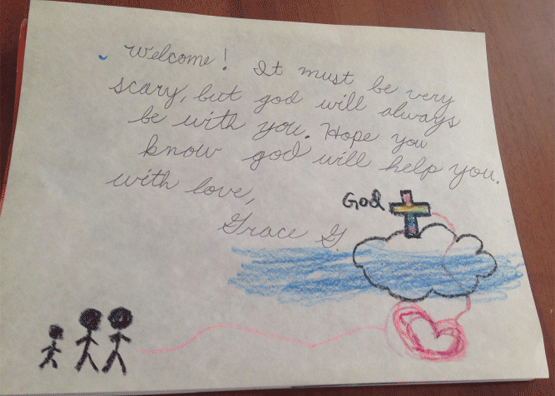 Welcome! It must be very
scary, but god will always
be with you. Hope you
know god will help you.
with love,
God
Grace G.